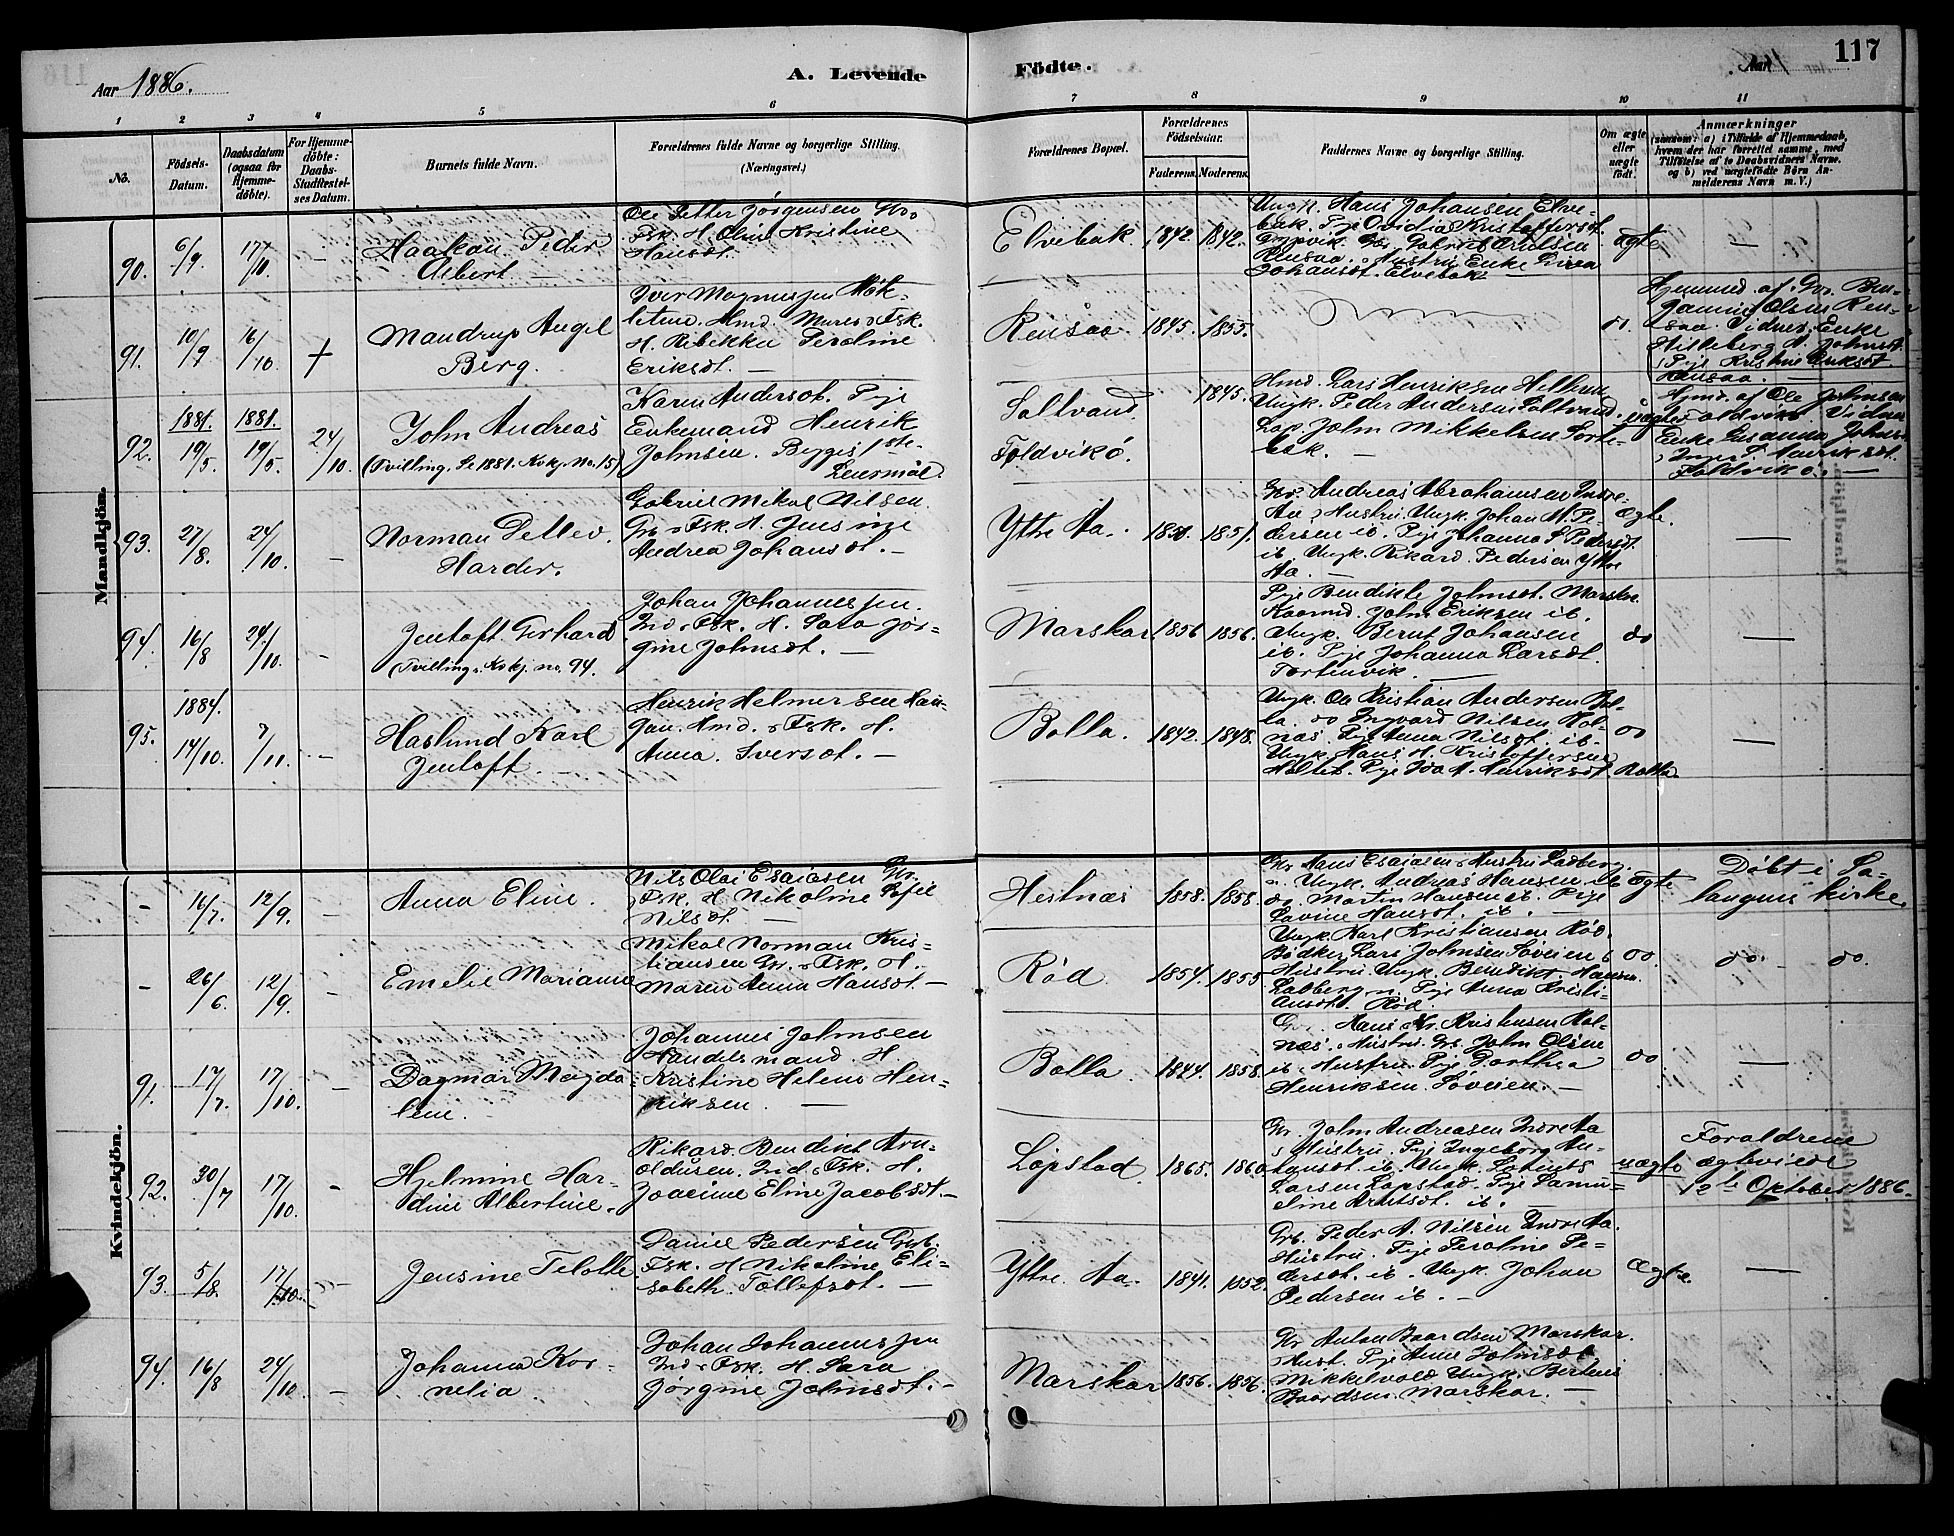 Aar 1886.
A. Levende
Födte.
Aar
117
1
2
3
4
5
6
7
8
9
10
11
No.
Födsels-
Datum.
Daabsdatum
(ogsaa for
Hjemme-
döbte).
For Hjemme-
döbte:
Daabs-
Stadfæstel-
ses Datum.
Barnets fulde Navn.
Forældrenes fulde Navne og borgerlige Stilling.
(Næringsvei.)
Forældrenes Bopæl.
Forældrenes
Födselsaar.
Faderens.
Moderens.
Faddernes Navne og borgerlige Stilling.
Om ægte
eller
uægte
födt.
Anmærkninger
(saasom: a) i Tilfælde af Hjemmedaab,
hvem der har forrettet samme, med
Tilföielse af to Daabsvidners Navne,
og b) ved uægtefödte Börn An-
melderens Navn m. V.)
Mandkjön.
90.
6/9
17/10
-
Haakan Peder
Albert -
Ole Petter Jørgensen Gbr.
Fsk. H. Oline Kristine
Hansdt.
Elvebak
1842
1842.
Ungk. Hans Johansen Elve-
bak. Pige Ovidia Kristoffersdt.
Rensaa. Hustru Enke
Johansdt. Elvebak
ægte
-
91.
10/9
16/10
+
Mandrup Angel
Berg.
Iver Magnussen
Hmd. Murer Fsk.
H. Rebikka Peroline
Eriksdt. -
Rensaa.
1845.
1855.
do.
Hjemmed. af Gbr. Ben-
jamin Olsen Ren-
saa. Vidner Enke
Hilleberg A. Johnsdt.
Pige Kristine Eriksdt.
Rensaa.
92.
1881.
19/5.
1881.
19/5.
24/10.
John Andreas
(Tvilling, Se 1881. Kvkj. no. 15)
Karen Andersdt. Pige
Enkemand Henrik
Johnsen. Begges 1ste
Leiermål.
Saltvand.
Foldvikö.
1845.
Hmd. Lars Henriksen
Ungk. Peder Andersen Saltvand.
Lap John Mikkelsen Sorte-
bek. -
uægte
Hjmd. af Ole Johnsen
Foldvik. Vidner
Enke Susanna Johns-
Inger S. Henriksdt.
Foldvikö. -
93.
27/8.
24/10.
-
Norman Detlev.
Harder.
Gabriel Mikal Nilsen.
Gbr. Fsk. H. Jensine
Andrea Johansdt. -
Yttre Aa.
1850.
1851.
Gbr. Andreas Abrahamsen Indre-
Aa, Hustru. Ungk. Johan A. Pe-
dersen ib. Pige Johanna P. Pedersdt.
ib. Ungk. Rikard Pedersen Yttre
Aa. -
Ægte.
-
94.
16/8
24/10.
-
Jentoft Gerhard
(Tvilling. Kvkj. no. 94.
Johan Johannessen.
Ind. Fsk. H. Sara Jør-
gine Johnsdt. -
Marskar
1856
1856.
Pige Bendikte Johnsdt. Marskar.
Kaarmd. John Eriksen ib.
Ungk. Bernt Johansen
ib. Pige Johanna Larsdt.
Tortenvik.
do
-
95.
1884.
14/10.
7/11.
-
Haslund Karl
Jentoft.
Henrik Helmersen Hau-
gan. Hmd. Fsk. H.
Anna Iversdt. -
Bolla.
1842.
1848.
Ungk. Ole Kristian Andersen Bol-
la. do Ingvard Nilsen Hol-
næs Pige Anna Nilsdt. ib.
Ungk. Hans A. Kristoffersen
Holtet. Pige Ida A. Henriksdt. Bolla.
do
-
Kvindekjön.
-
16/7.
12/9.
-
Anna Eline.
Nils Olai Esaiasen Gbr.
Fsk. H. Nikoline Sofie
Nilsdt. -
Hestnæs
1858.
1858.
Gbr. Hans Esaiasen, Hustru Ladberg.
Ungk. Andreas Hansen ib
do. Martin Hansen ib. Pige
Lovine Hansdt. ib. -
ægte
Døbt i Sa-
langens kirke.
-
26/6
12/9.
-
Emelie Marianna
Mikal Norman Kris-
tiansen Gbr. Fsk. H.
Maren Anna Hansdt. -
Rød.
1854.
1855
Ungk. Karl Kristiansen Rød.
Bødker Lars Johnsen Søveien,
Hustru. Ungk. Bendikt Hansen
Ladberg. Pige Anna Kristi-
ansdt. Rød.
do.
do. - do.
91.
17/7.
17/10.
-
Dagmar Magda-
lene.
Johannes Johnsen
Handelsmand. H.
Kristine Helene Hen-
riksen. -
Bolla.
1844.
1858.
Gbr. Hans Kr. Kristensen Hol-
næs. Hustru. Gbr. John Olsen
ib. Hustru. Pige Dorthea
Henriksen. Søveien. -
do
-
92.
30/7
17/10.
-
Hjelmine Har-
dine Albertine.
Rikard Bendikt Arn-
oldusen. Ind. Fsk. H.
Joacime Eline Jacobsdt. -
Løpstad.
1865.
1860.
Gbr. John Andreasen Indre Aa
Hustru. Pige Ingeborg An-
tonsdt. ib. Ungk.
Larsen Løpstad. Pige Samu-
line Arntsdt. ib.
uægte
Forældrene
ægteviede
12te October 1886.
93.
5/8.
17/10.
-
Jensine Telotte
Daniel Pedersen Gbr.
Fsk. H Nikoline Eli-
sabeth Tollefsdt. -
Yttre Aa.
1841.
1852.
Gbr. Peder A. Nilsen Indre Aa.
Hustru. Pige Peroline Pe-
dersdt. ib. Ungk. Johan
Pedersen ib. -
Ægte.
-
94.
16/8
24/10
-
Johanna Kor-
nelia.
Johan Johannessen
Ind. Fsk. H. Sara
Jørgine Johnsdt. -
Marskar
1856.
1856.
Gbr. Anton Baardsen Marskar.
Hust. Pige Anne Johnsdt
Mikkelvold. Ungk. Berteus
Baardsen. Marskar. -